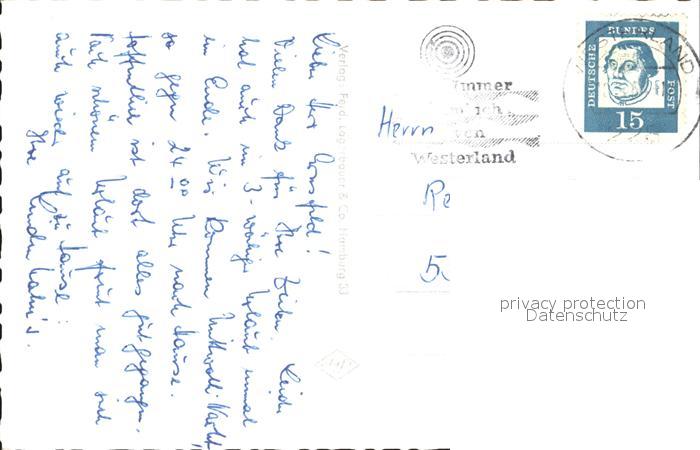 Lieber Herr
Vielen Dank für Ihre Zeilen. Leider
hat auch ein 3-wöchiger Urlaub einmal
ein Ende. Wir kommen Mittwoch Nacht,
so gegen 24 00 Uhr nach Hause.
Hoffentlich ist dort alles gut gegangen.
Nach schönem Urlaub freut man sich
auch wieder auf zu Hause.
Ihre
Verlag Ferd. Lagerbauer & Co. Hamburg 53
immer
Westerland
WESTERLAND
DEUTSCHE
BUNDES
POST
15
Herrn
Re
5
privacy protection
Datenschutz